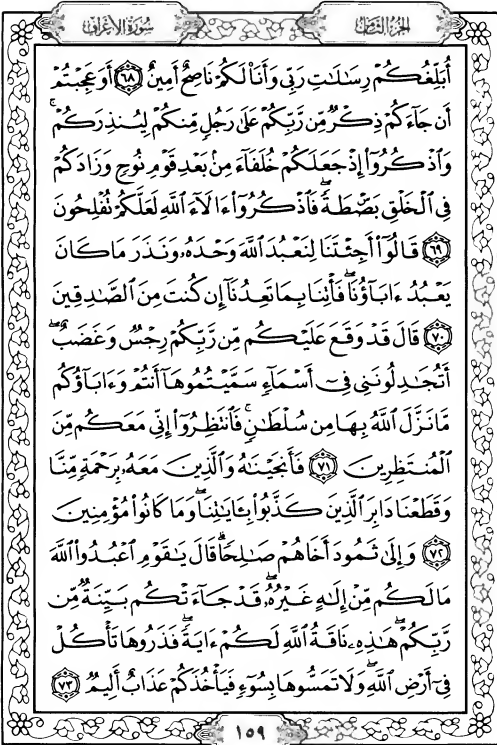 سُورَةُ الْأَعْرَافِ
الجُزْءُ الثَّامِنُ
أُبَلِّغُكُمْ رِسَٰلَٰتِ رَبِّى وَأَنَا۠ لَكُمْ نَاصِحٌ أَمِينٌ ٦٨ أَوَعَجِبْتُمْ
أَن جَآءَكُمْ ذِكْرٌ مِّن رَّبِّكُمْ عَلَىٰ رَجُلٍ مِّنكُمْ لِيُنذِرَكُمْ ۚ
وَٱذْكُرُوٓا۟ إِذْ جَعَلَكُمْ خُلَفَآءَ مِنۢ بَعْدِ قَوْمِ نُوحٍ وَزَادَكُمْ
فِى ٱلْخَلْقِ بَصْۜطَةً ۖ فَٱذْكُرُوٓا۟ ءَالَآءَ ٱللَّهِ لَعَلَّكُمْ تُفْلِحُونَ
٦٩ قَالُوٓا۟ أَجِئْتَنَا لِنَعْبُدَ ٱللَّهَ وَحْدَهُۥ وَنَذَرَ مَا كَانَ
يَعْبُدُ ءَابَآؤُنَا ۖ فَأْتِنَا بِمَا تَعِدُنَآ إِن كُنتَ مِنَ ٱلصَّٰدِقِينَ
٧٠ قَالَ قَدْ وَقَعَ عَلَيْكُم مِّن رَّبِّكُمْ رِجْسٌ وَغَضَبٌ ۖ
أَتُجَٰدِلُونَنِى فِىٓ أَسْمَآءٍ سَمَّيْتُمُوهَآ أَنتُمْ وَءَابَآؤُكُم
مَّا نَزَّلَ ٱللَّهُ بِهَا مِن سُلْطَٰنٍ ۚ فَٱنتَظِرُوٓا۟ إِنِّى مَعَكُم مِّنَ
ٱلْمُنتَظِرِينَ ٧١ فَأَنجَيْنَٰهُ وَٱلَّذِينَ مَعَهُۥ بِرَحْمَةٍ مِّنَّا
وَقَطَعْنَا دَابِرَ ٱلَّذِينَ كَذَّبُوا۟ بِـَٔايَٰتِنَا ۖ وَمَا كَانُوا۟ مُؤْمِنِينَ
٧٢ وَإِلَىٰ ثَمُودَ أَخَاهُمْ صَٰلِحًا ۗ قَالَ يَٰقَوْمِ ٱعْبُدُوا۟ ٱللَّهَ
مَا لَكُم مِّنْ إِلَٰهٍ غَيْرُهُۥ ۖ قَدْ جَآءَتْكُم بَيِّنَةٌ مِّن
رَّبِّكُمْ ۖ هَٰذِهِۦ نَاقَةُ ٱللَّهِ لَكُمْ ءَايَةً ۖ فَذَرُوهَا تَأْكُلْ
فِىٓ أَرْضِ ٱللَّهِ ۖ وَلَا تَمَسُّوهَا بِسُوٓءٍ فَيَأْخُذَكُمْ عَذَابٌ أَلِيمٌ ٧٣
١٥٩